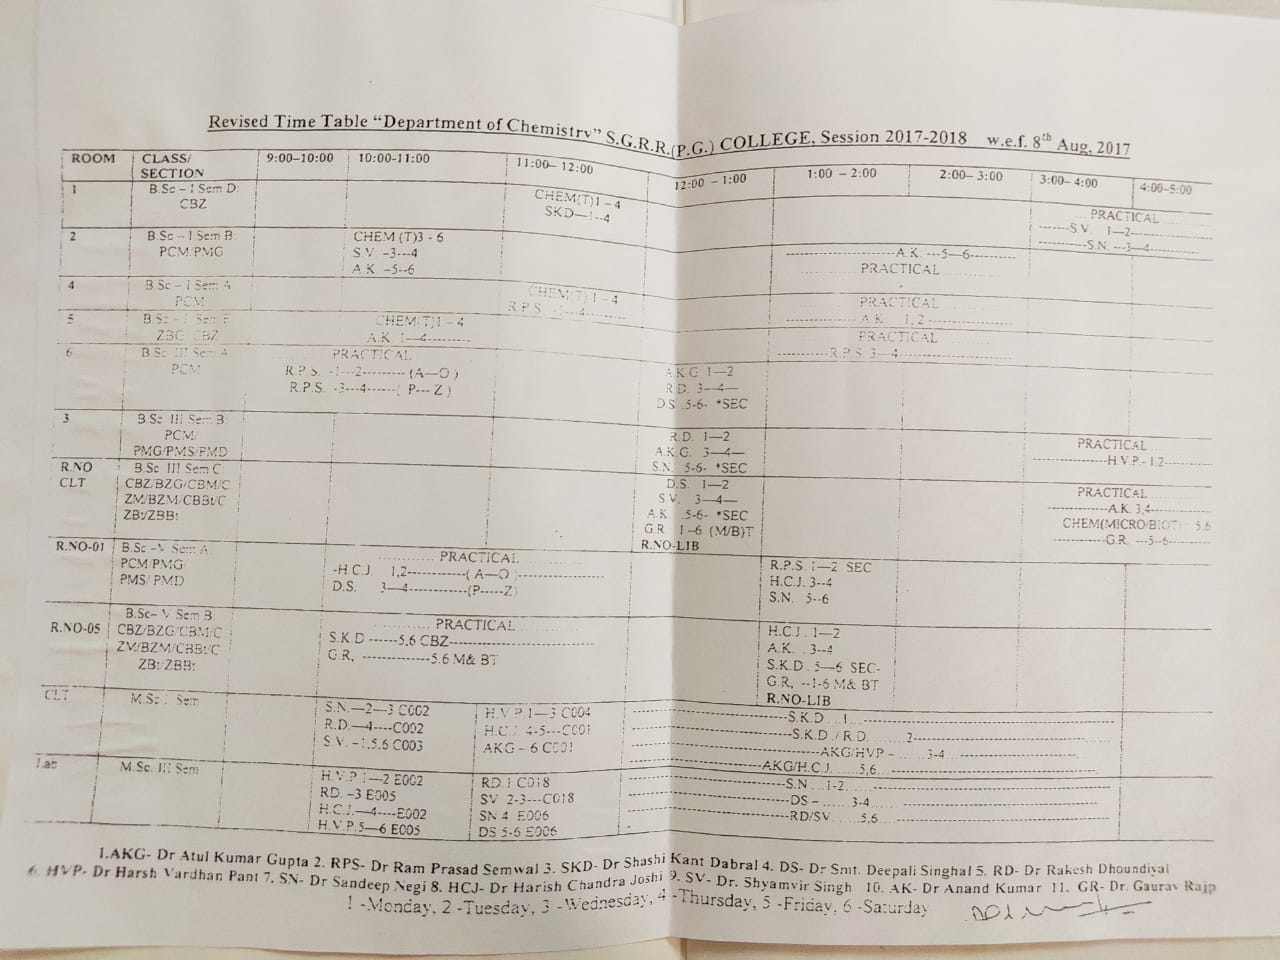 Revised Time Table “Department of Chemistry” S.G.R.R.(P.G.) COLLEGE, Session 2017-2018 w.e.f. 8th Aug, 2017
ROOM CLASS/ SECTION 9:00–10:00 10:00-11:00 11:00– 12:00 12:00 – 1:00 1:00 – 2:00 2:00– 3:00 3:00– 4:00 4:00-5:00
1 B.Sc – I Sem D: CHEM(T)1 – 4 PRACTICAL
CBZ SKD—1--4 -------S.V. 1—2-----------
----------S.N. ---3—4-----------
2 B.Sc – I Sem B: CHEM (T)3 - 6
PCM/PMG S.V –3---4 ----------------------A.K. ---5—6----------
A.K. –5--6 PRACTICAL
4 B.Sc – I Sem A CHEM(T)1 – 4 PRACTICAL
PCM R.P.S. -1---4-------- A.K. 1,2
5 B.Sc – I Sem E CHEM(T)1 – 4 PRACTICAL
ZBG CBZ A.K. 1—4--------- ----------R.P.S. 3—4
6 B.Sc III Sem A PRACTICAL
PCM R.P.S. -1---2--------- (A—O ) A.K.G 1—2
R.P.S. -3---4------( P--- Z ) R.D. 3—4—
D.S .5-6- *SEC
3 B.Sc III Sem B: R.D. 1—2 PRACTICAL
PCM/ A.K.G. 3—4— -------------H.V.P.- 1,2-----------
PMG/PMS/PMD S.N. 5-6- *SEC
R.NO B.Sc III Sem C: D.S. 1—2 PRACTICAL
CLT CBZ/BZG/CBM/C S.V. 3—4— -----------A.K. 3,4
ZM/BZM/CBBt/C A.K. .5-6- *SEC CHEM(MICRO/BIOT) 5,6
ZBt/ZBBt G.R. 1–6 (M/B)T -----------G.R. ---5--6
R.NO-LIB
R.NO-01 B.Sc –V Sem A: PRACTICAL R.P.S. 1—2 SEC
PCM/PMG -H.C.J. 1,2------------( A—O )---------------- H.C.J. 3--4
PMS/ PMD D.S. 3—4------------(P-----Z) S.N. 5--6
B.Sc– V Sem B: PRACTICAL H.C.J. 1—2
R.NO-05 CBZ/BZG/CBM/C S.K.D ------5,6 CBZ A.K. . 3--4
ZM/BZM/CBBt/C G.R, --------------5.6 M& BT S.K.D. 5—6 SEC-
ZBt/ZBBt G.R, --1-6 M& BT
R.NO-LIB
CLT M.Sc I Sem S.N.—2—3 C002 H.V.P.1—3 C004 S.K.D. . .1
R.D.—4----C002 H.C.J. 4-5---C001 S.K.D./ R.D. 2
S.V. –1,5,6 C003 AKG – 6 C001 AKG/HVP – 3-4
AKG/H.C.J. 5,6
Lab M.Sc. III Sem H.V.P.1—2 E002 RD 1 C018 S.N 1-2
RD. –3 E005 SV 2-3---C018 DS – 3-4
H.C.J.—4----E002 SN 4 E006 RD/SV 5,6
H.V.P.5—6 E005 DS 5-6 E006
1.AKG- Dr Atul Kumar Gupta 2. RPS- Dr Ram Prasad Semwal 3. SKD- Dr Shashi Kant Dabral 4. DS- Dr Smt. Deepali Singhal 5. RD- Dr Rakesh Dhoundiyal
6. HVP- Dr Harsh Vardhan Pant 7. SN- Dr Sandeep Negi 8. HCJ- Dr Harish Chandra Joshi 9. SV- Dr. Shyamvir Singh 10. AK- Dr Anand Kumar 11. GR- Dr. Gaurav
1 -Monday, 2 -Tuesday, 3 -Wednesday, 4 -Thursday, 5 -Friday, 6 -Saturday